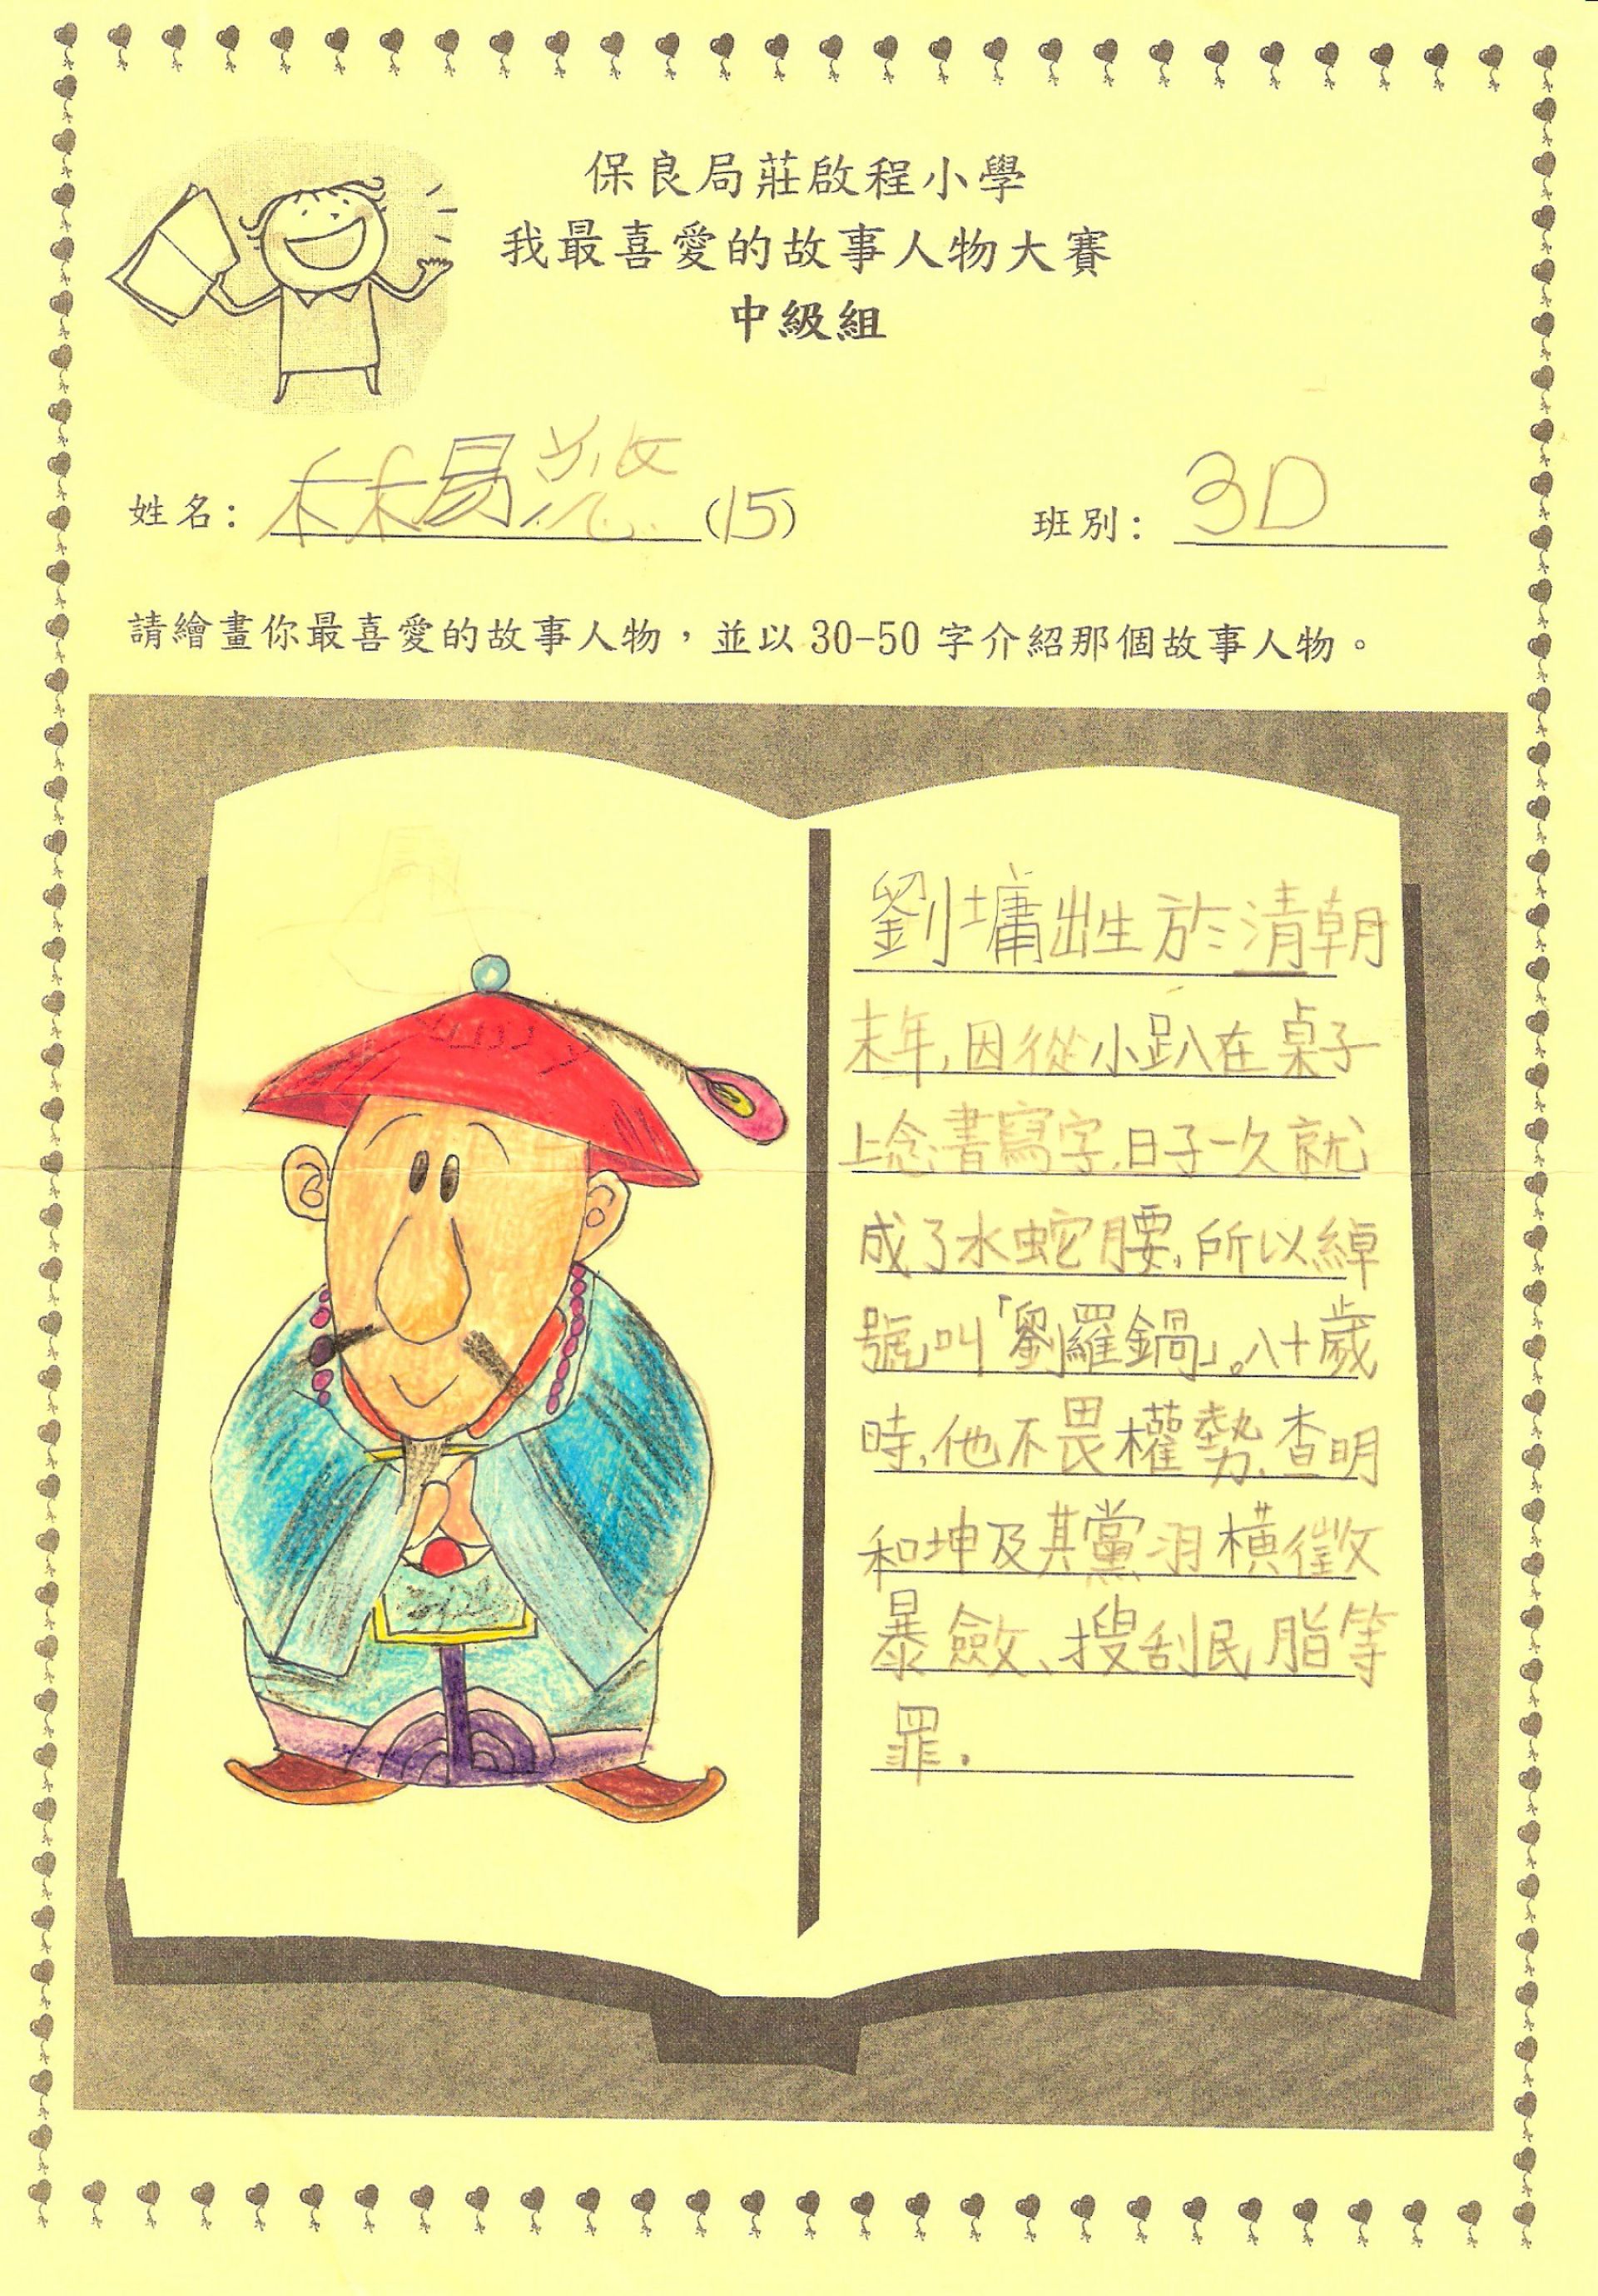 保良局莊啟程小學
我最喜愛的故事人物大賽
中級組
姓名：林易 (15)
班別：3D
請繪畫你最喜愛的故事人物，並以 30-50 字介紹那個故事人物。
劉墉出生於清朝
末年,因從小趴在桌子
上念書寫字,日子一久就
成了水蛇腰,所以綽
號叫「劉羅鍋」。八十歲
時,他不畏權勢,查明
和坤及其黨羽橫徵
暴斂、搜刮民脂等
罪.